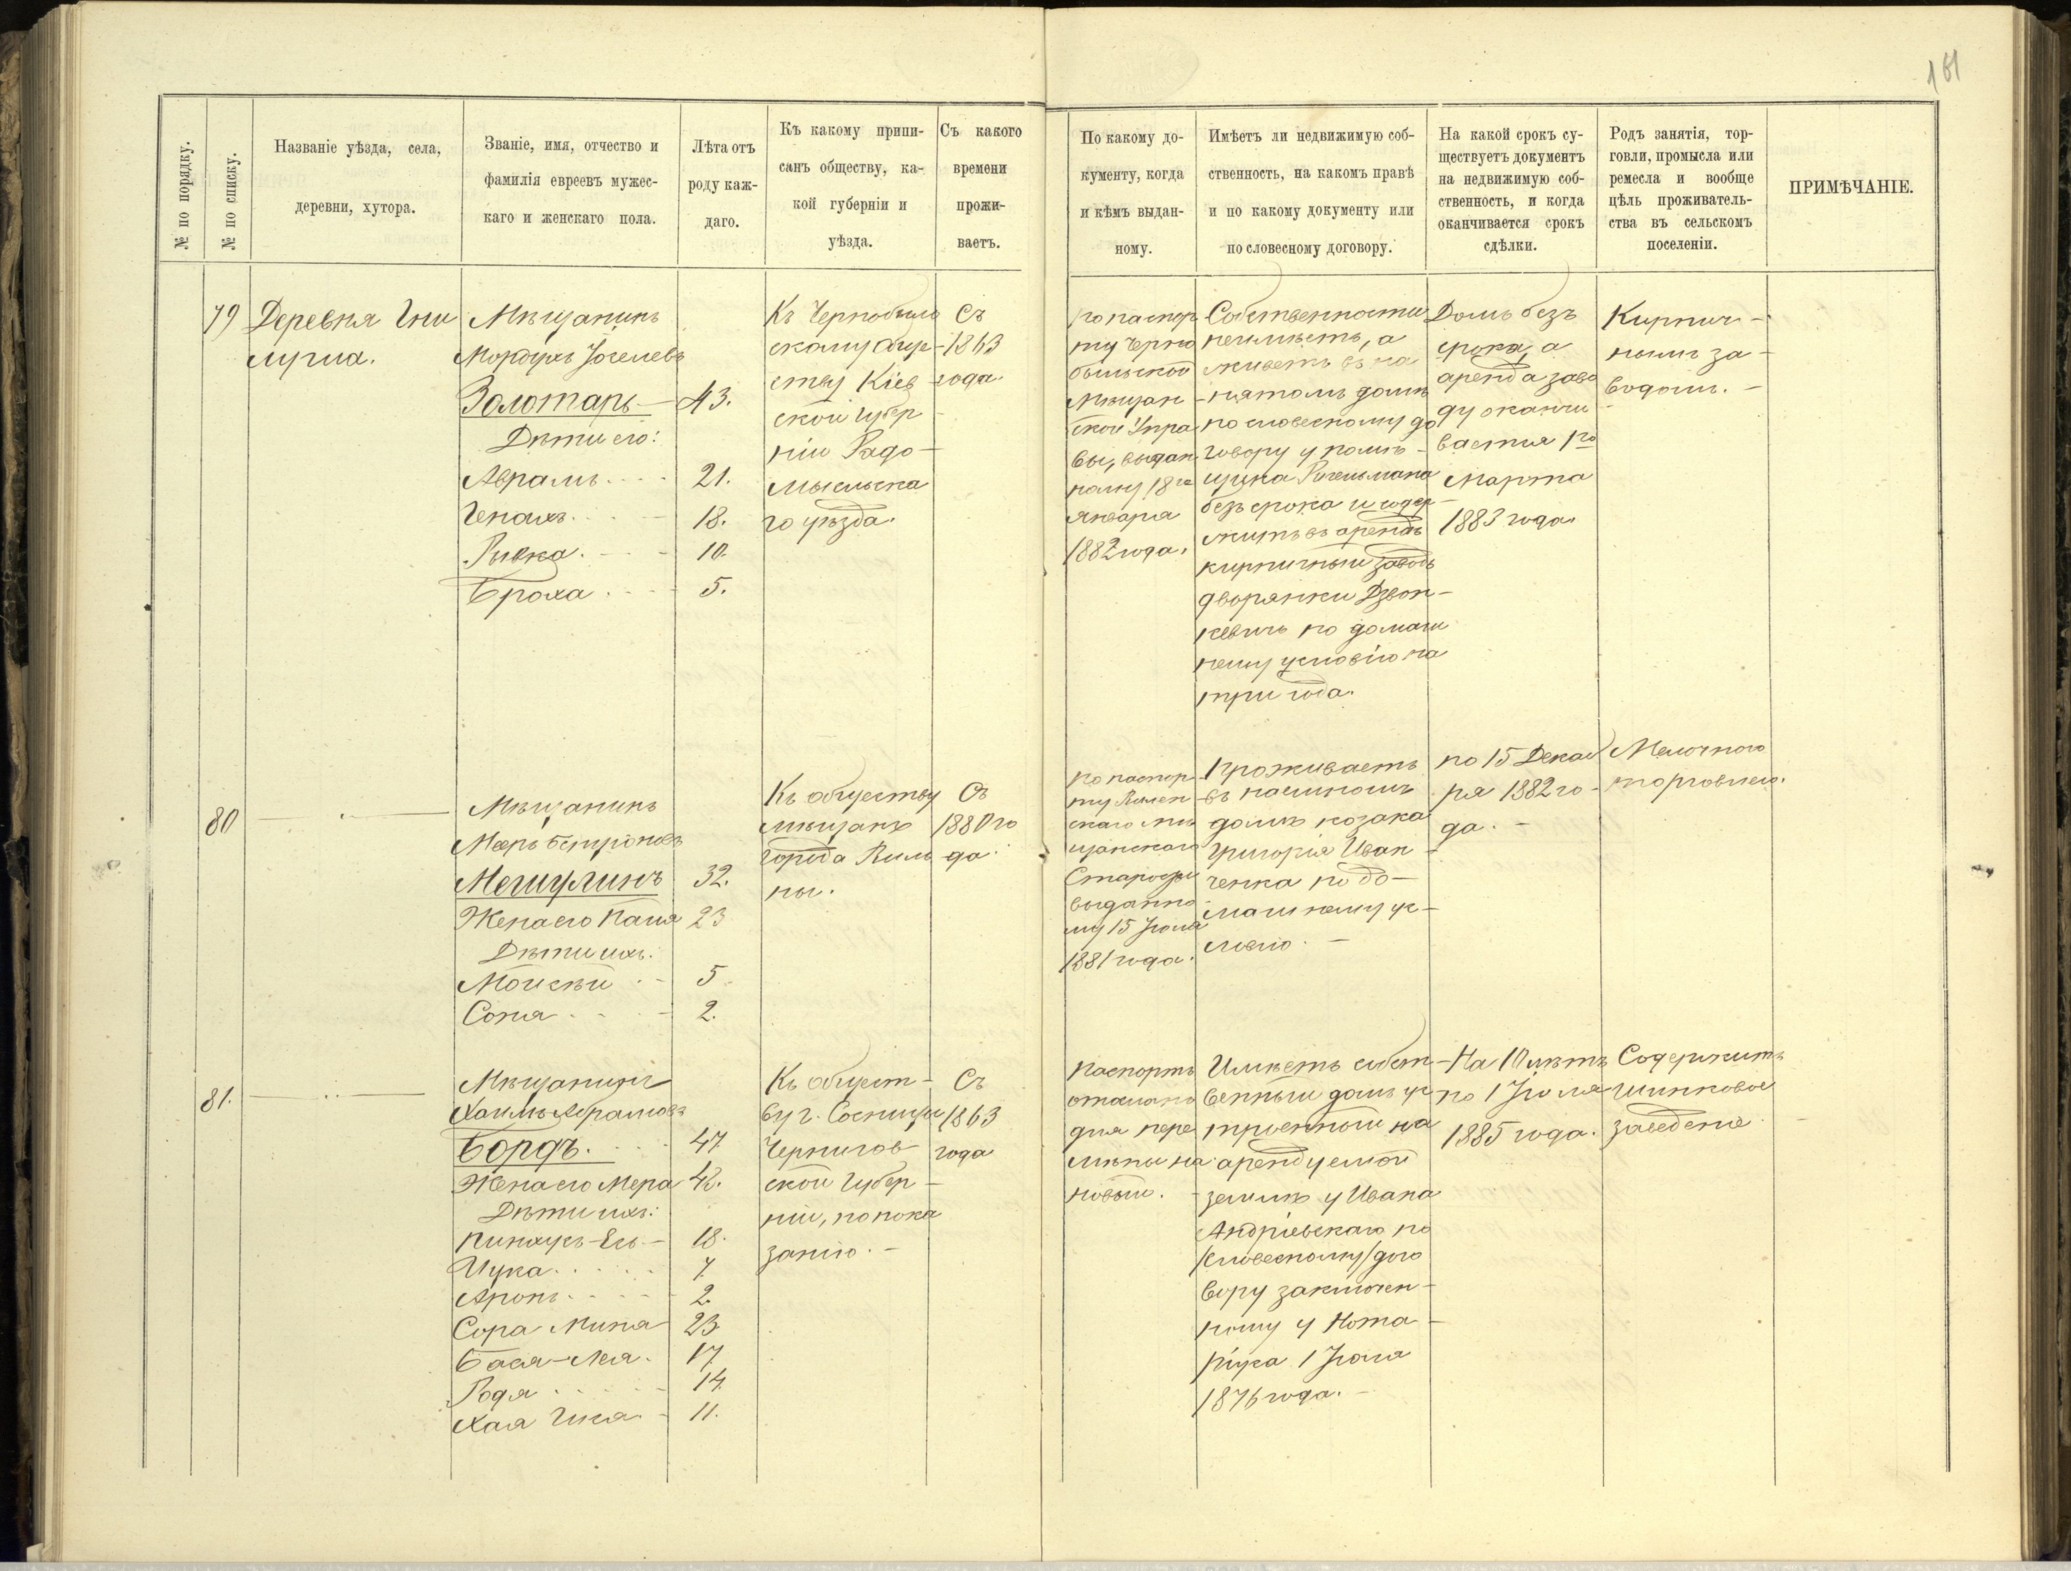 161
№ по порядку.
№ по списку.
Названіе уѣзда, села,
деревни, хутора.
Званіе, имя, отчество и
фамилія евреевъ мужес-
каго и женскаго пола.
Лѣта отъ
роду каж-
даго.
Къ какому припи-
санъ обществу, ка-
кой губерніи и
уѣзда.
Съ какого
времени
прожи-
ваетъ.
По какому до-
кументу, когда
и кѣмъ выдан-
ному.
Имѣетъ ли недвижимую соб-
ственность, на какомъ правѣ
и по какому документу или
по словесному договору.
На какой срокъ су-
ществуетъ документъ
на недвижимую соб-
ственность, и когда
оканчивается срокъ
сдѣлки.
Родъ занятія, тор-
говли, промысла или
ремесла и вообще
цѣль проживатель-
ства въ сельскомъ
поселеніи.
ПРИМѢЧАНІЕ.
79
Деревня Гни
луша.
Мѣщанинъ
Мордухъ Іоселевъ
Золотарь 43.
Дѣти его:
Аврамъ 21.
Генахъ 18.
Ривка 10
Броха 5.
Къ Чернобыль
скому обще-
ству Кіев
ской губер
ніи Радо-
мысльска
го уѣзда.
Съ
1863
года.
по паспор
ту Черно
быльской
Мѣщан
ской Упра
вы, выдан
ному 18го
Января
1882 года.
Собственности
неимѣетъ, а
живетъ въ на
нятомъ домѣ
по словесному до
говору у помѣ-
щика
безъ срока и содер-
житъ въ арендѣ
кирпичный заводъ
дворянки Дзвон-
кевичъ по домаш
нему условію на
три года.
Домъ безъ
срока, а
аренда заво
ду оканчи
вается 1го
Марта
1883 года.
Кирпич-
нымъ за-
водомъ.
80
Мѣщанинъ
Мееръ
Мешулинъ 32.
Жена его Паша 23
Дѣти ихъ:
Мойсѣй 5
Соня 2.
Къ обществу
мѣщанъ
города Виль
ны.
Съ
1880 го
да.
по паспор-
ту Вилен
скаго мѣ
щанскаго
Старосты
выданно
му 15 Іюля
1881 года.
Проживаетъ
въ наемномъ
домѣ козака
Григорія Иван-
ченка по до-
машнему ус-
ловію.
по 15 Декаб
ря 1882 го-
да.
Мелочною
торговлею.
81.
Мѣщанинъ
Хаимъ Абрамовъ
Бордъ 47
Жена его Мера 42.
Дѣти ихъ:
18.
7
Аронъ 2.
Сора Мина 23
Бася-Лея 17
Родя 14
Хая 11.
Къ общест-
ву г. Сосницы
Чернигов
ской губер-
ніи, по пока
занію.
Съ
1863
года
Паспортъ
отослано
для пере
мѣны на
новый.
Имѣетъ собст-
венный домъ ус
троенной на
арендуемой
землѣ у Ивана
Андріевскаго по
словесному дого
вору заключен-
ному у Нота-
ріуса 1 Іюля
1876 года.
На 10 лѣтъ
по 1 Іюля
1885 года.
Содержитъ
шинковое
заведеніе